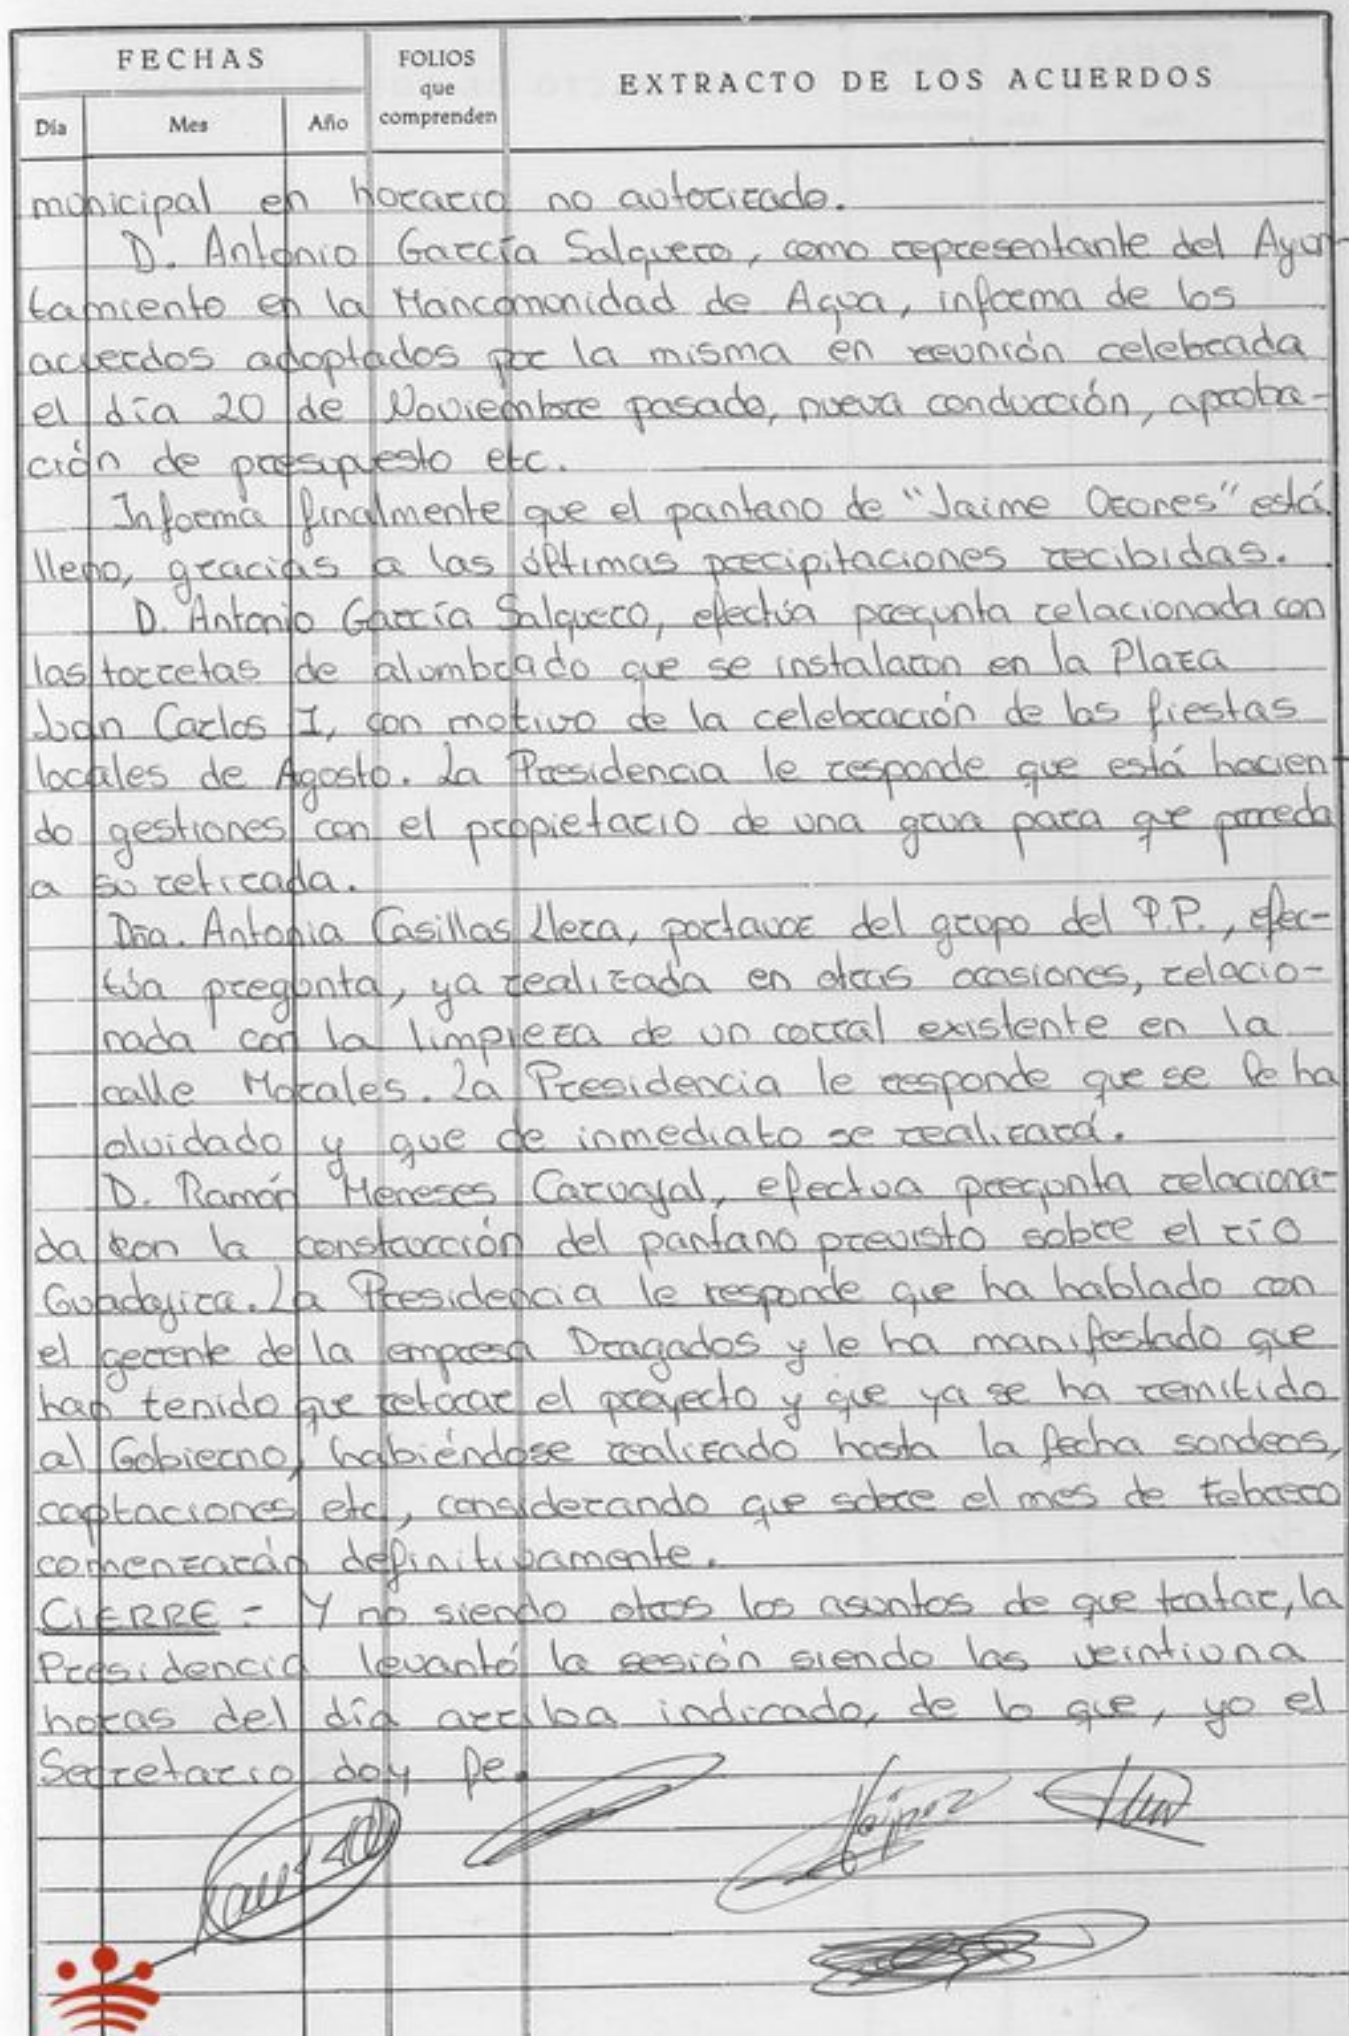 FECHAS
FOLIOS
que
comprenden
EXTRACTO DE LOS ACUERDOS
Día Mes Año
municipal en horario no autorizado.
D. Antonio García Salguero, como representante del Ayun-
tamiento en la Mancomunidad de Agua, informa de los
acuerdos adoptados por la misma en reunión celebrada
el día 20 de Noviembre pasado, nueva conducción, aproba-
ción de presupuesto etc.
Informa finalmente que el pantano de "Jaime Ozores" está
lleno, gracias a las últimas precipitaciones recibidas.
D. Antonio García Salguero, efectúa pregunta relacionada con
las torretas de alumbrado que se instalaron en la Plaza
Juan Carlos I, con motivo de la celebración de las fiestas
locales de Agosto. La Presidencia le responde que está hacien-
do gestiones con el propietario de una grua para que proceda
a su retirada.
Dña. Antonia Casillas Llera, portavoz del grupo del P.P., efec-
túa pregunta, ya realizada en otras ocasiones, relacio-
nada con la limpieza de un corral existente en la
calle Morales. La Presidencia le responde que se le ha
olvidado y que de inmediato se realizará.
D. Ramón Meneses Carvajal, efectua pregunta relaciona-
da con la construcción del pantano previsto sobre el río
Guadajira. La Presidencia le responde que ha hablado con
el gerente de la empresa Dragados y le ha manifestado que
han tenido que retocar el proyecto y que ya se ha remitido
al Gobierno, habiéndose realizado hasta la fecha sondeos,
captaciones etc, considerando que sobre el mes de Febrero
comenzarán definitivamente.
CIERRE - Y no siendo otros los asuntos de que tratar, la
Presidencia levantó la sesión siendo las veintiuna
horas del día arriba indicado, de lo que, yo el
Secretario doy fe.